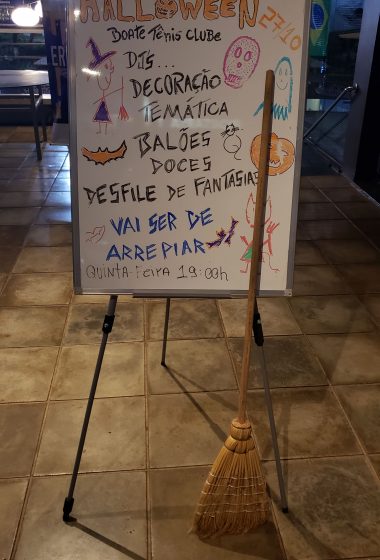 HALLOWEEN
27/10
Boate Tênis Clube
DJS...
DECORAÇÃO
TEMÁTICA
BALÕES
DOCES
DESFILE DE FANTASIAS
VAI SER DE
ARREPIAR
QUINTA-FEIRA 19:00h